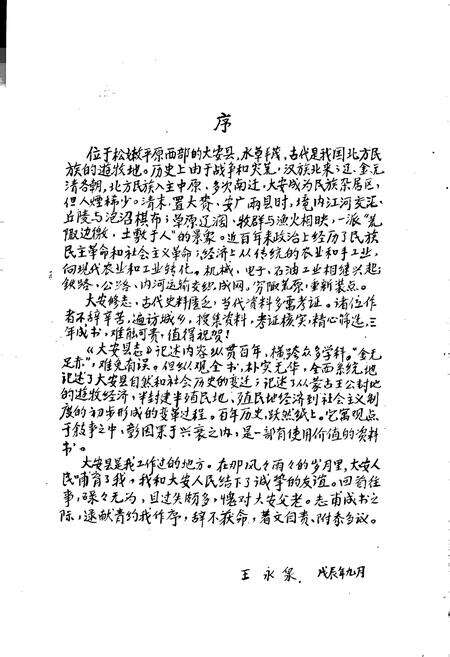 序
位于松嫩平原西部的大安县,水草丰茂,古代是我国北方民
族的遊牧地。历史上由于战争和灾荒,汉族北来;辽、金、元
清各朝,北方民族入主中原,多次南迁,大安成为民族杂居区,
但人烟稀少。清末,置大赉、安广两县时,境内江河交汇,
丘陵与泡沼棋布;草原辽阔,牧群与渔火相映,一派“荒
陬边徼,土斁于人”的景象。近百年来政治上经历了民族
民主革命和社会主义革命;经济上从传统的农业和手工业,
向现代农业和工业转化。机械、电子、石油工业相继兴起;
铁路、公路、内河运输交织成网。穷陬荒原,重新装点。
大安修志,古代史料匮乏,当代资料多需考证。诸位作
者不辞辛苦,遍访城乡,搜集资料,考证核实,精心筛选,三
年成书,难能可贵,值得祝贺!
《大安县志》记述内容纵贯百年,横跨众多学科。“金无
足赤”,难免有误。但纵观全书,朴实无华,全面系统地
记述了大安自然和社会历史的变迁;记述了从蒙古王公封地
的遊牧经济,半封建半殖民地、殖民地经济到社会主义制
度的初步形成的变革过程。百年历史,跃然纸上。它寓观点
于叙事之中,彰因果于兴衰之内,是一部有使用价值的资料
书。
大安县是我工作过的地方。在那风风雨雨的岁月里,大安人
民哺育了我,我和大安人民结下了诚挚的友谊。回首往
事,碌々无为,且过失颇多,愧对大安父老。志甫成书之
际,逯献青约我作序,辞不获命,著文自责、附忝刍议。
王永泉 戊辰年九月